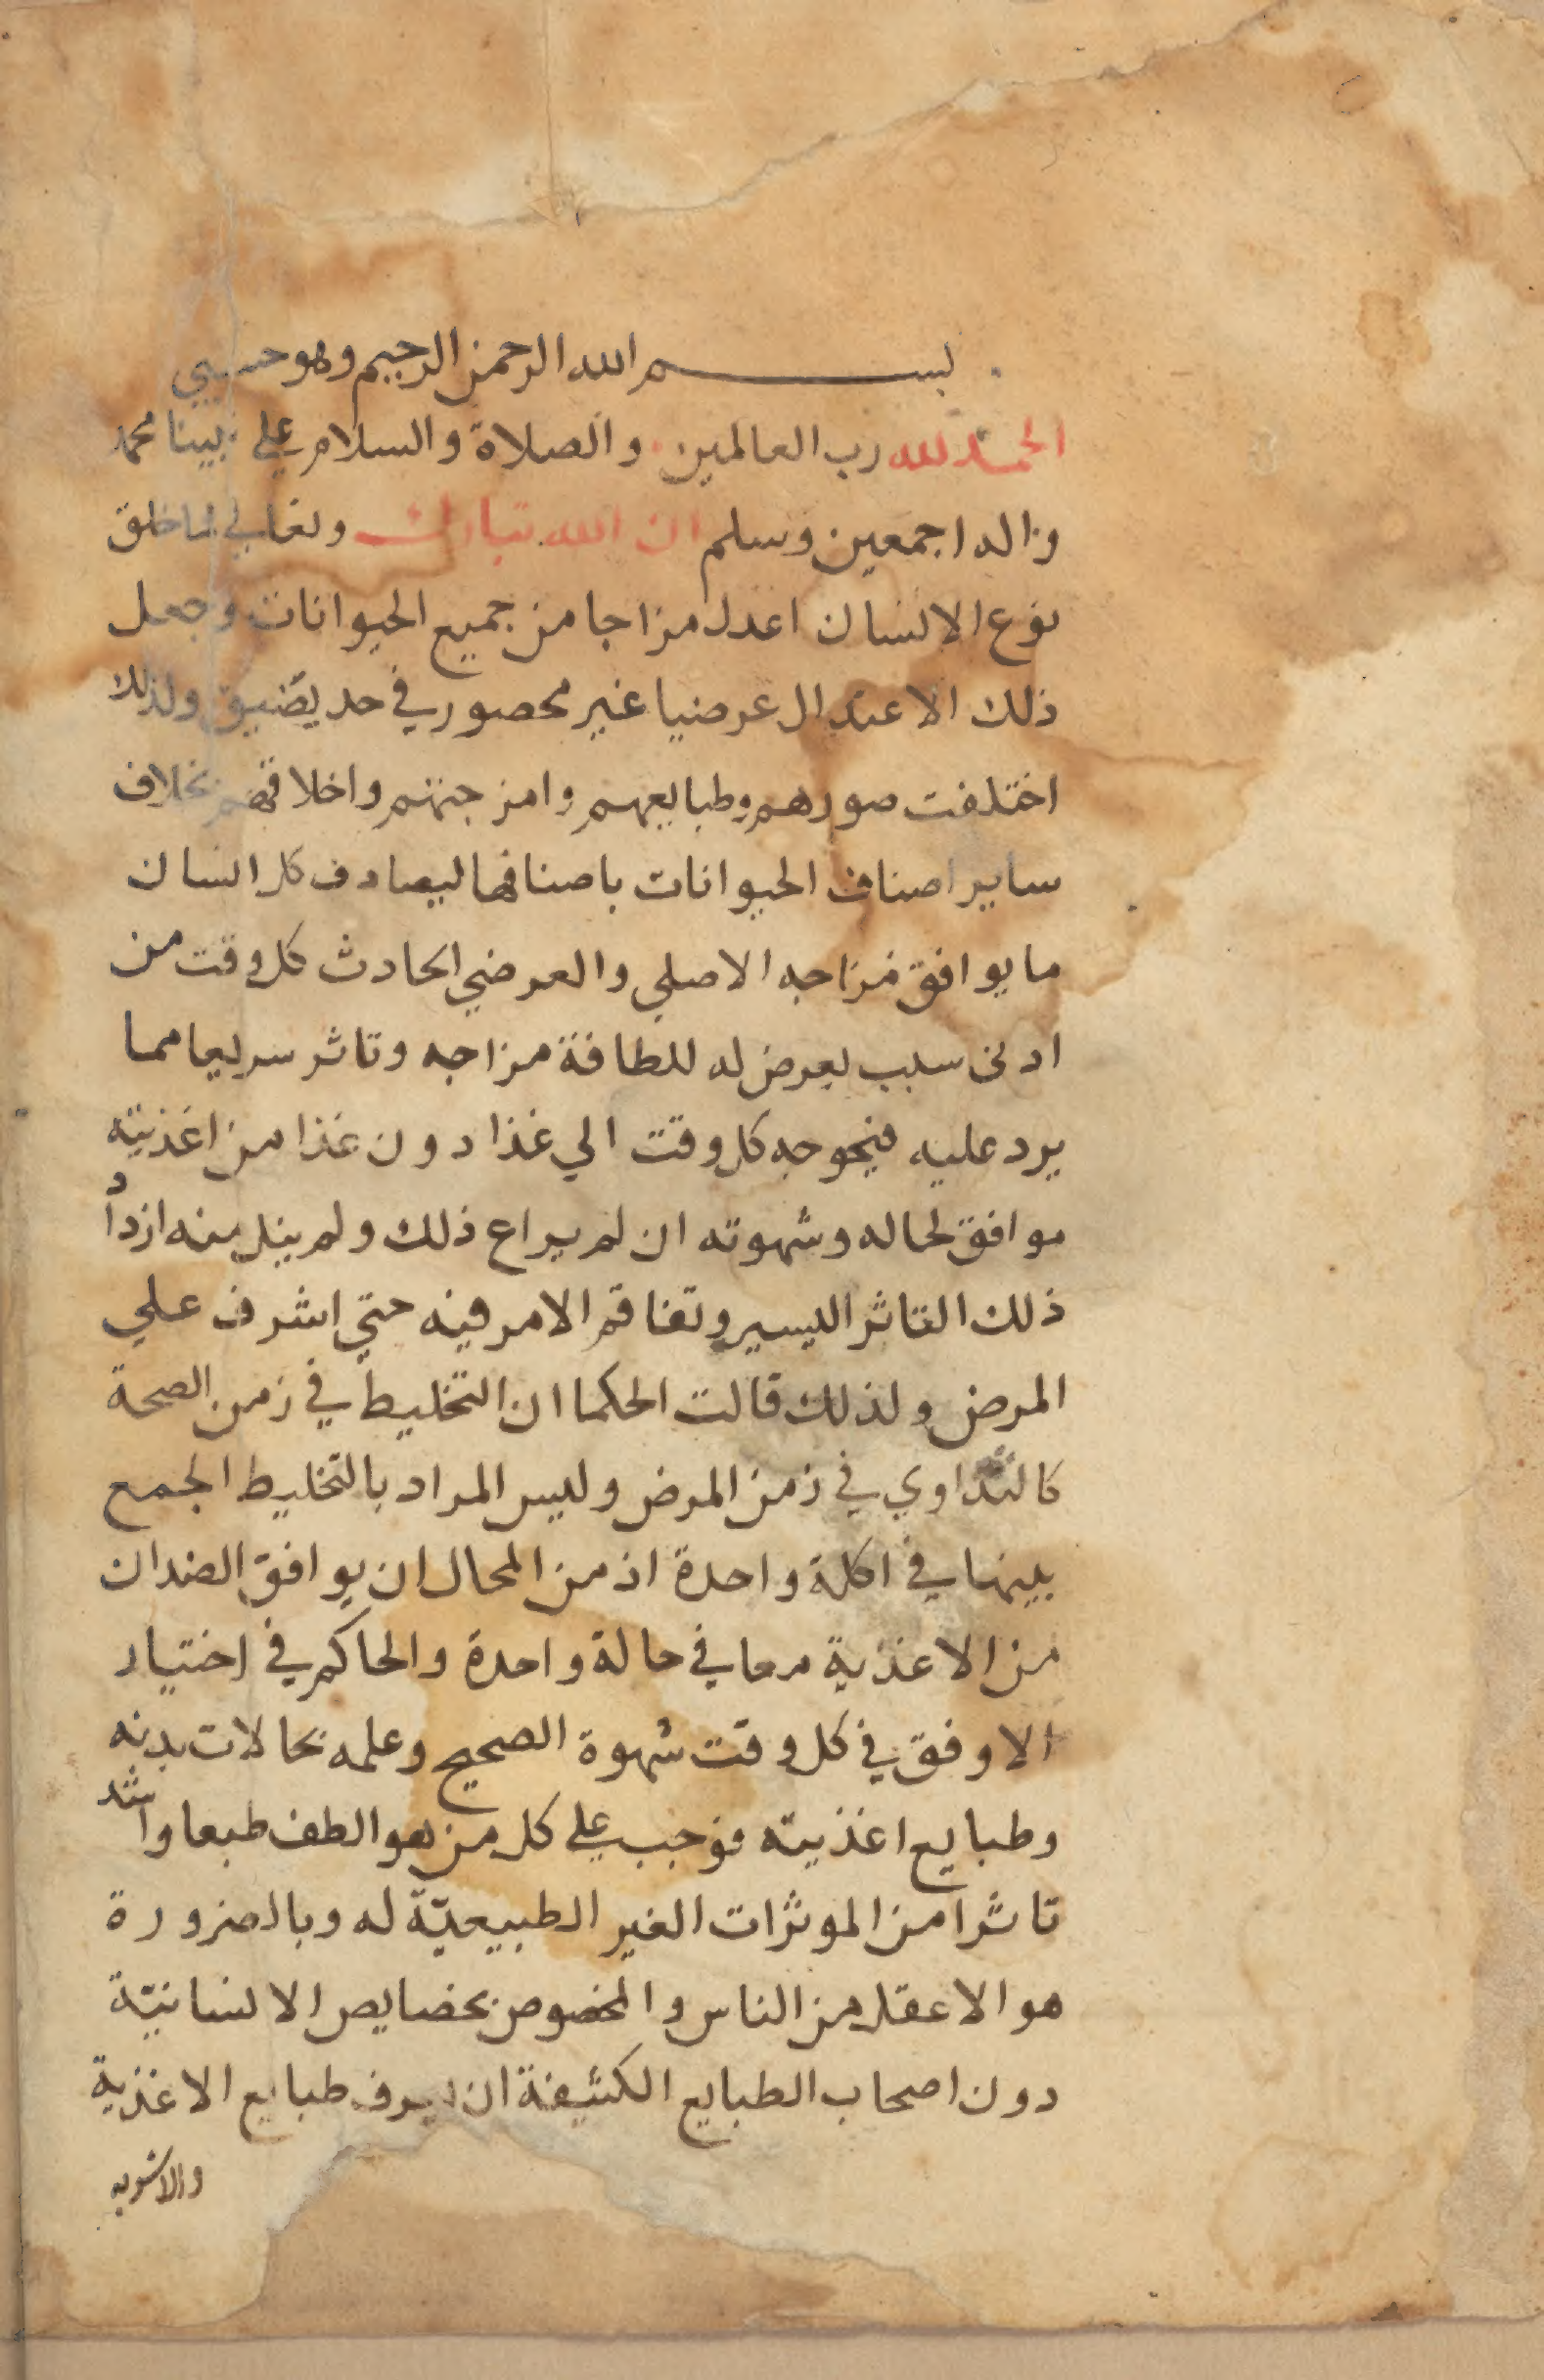 بسم الله الرحمن الرحيم وهو حسبي
الحمد لله رب العالمين والصلاة والسلام علي نبينا محمد
واله اجمعين وسلم ان الله تبارك وتعالي لما خلق
نوع الانسان اعدل مزاجا من جميع الحيوانات وجعل
ذلك الاعتدال عرضيا غير محصور في حد يضيق ولذلك
اختلفت صورهم وطبايعهم وامزجتهم واخلاقهم بخلاف
ساير اصناف الحيوانات باصنافها ليصادف كل انسان
ما يوافق مزاجه الاصلي والعرضي الحادث كل وقت من
ادنى سبب يعرض له للطافة مزاجه وتاثر سريعا مما
يرد عليه فيحوجه كل وقت الي غذا دون غذا من اغذيته
موافق لحاله وشهوته ان لم يراع ذلك ولم ينل منه ازداد
ذلك التاثر اليسير وتفاقم الامر فيه حتي اشرف علي
المرض ولذلك قالت الحكما ان التخليط في زمن الصحة
كالتداوي في زمن المرض وليس المراد بالتخليط الجمع
بينها في اكلة واحدة اذ من المحال ان يوافق الضدان
من الاغذية معا في حالة واحدة والحاكم في اختيار
الاوفق في كل وقت شهوة الصحيح وعلمه بحالات بدنه
وطبايع اغذيته فوجب علي كل من هو الطف طبعا واشد
تاثرا من الموثرات الغير الطبيعيّة له وبالضرورة
هو الاعقل من الناس والمخصوص بخصايص الانسانيّة
دون اصحاب الطبايع الكثيفة ان يعرف طبايع الاغذية
والاشربه